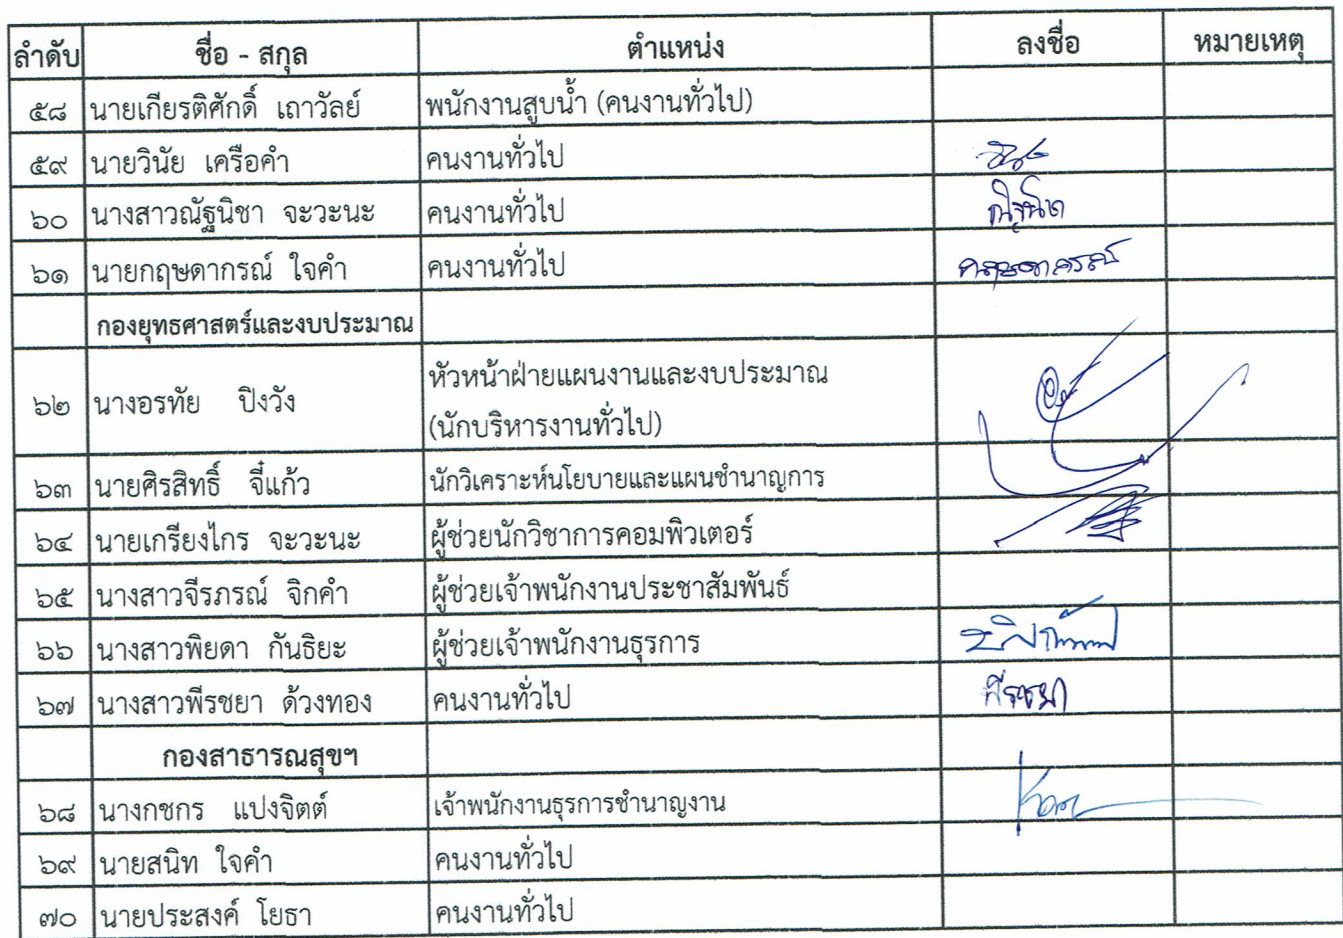 ลำดับ ชื่อ - สกุล ตำแหน่ง ลงชื่อ หมายเหตุ
๕๘ นายเกียรติศักดิ์ เถาวัลย์ พนักงานสูบน้ำ (คนงานทั่วไป)
๕๙ นายวินัย เครือคำ คนงานทั่วไป
๖๐ นางสาวณัฐนิชา จะวะนะ คนงานทั่วไป
๖๑ นายกฤษดากรณ์ ใจคำ คนงานทั่วไป กฤษดากรณ์
กองยุทธศาสตร์และงบประมาณ
๖๒ นางอรทัย ปิงวัง หัวหน้าฝ่ายแผนงานและงบประมาณ
(นักบริหารงานทั่วไป)
๖๓ นายศิรสิทธิ์ จี๋แก้ว นักวิเคราะห์นโยบายและแผนชำนาญการ
๖๔ นายเกรียงไกร จะวะนะ ผู้ช่วยนักวิชาการคอมพิวเตอร์
๖๕ นางสาวจีรภรณ์ จิกคำ ผู้ช่วยเจ้าพนักงานประชาสัมพันธ์
๖๖ นางสาวพิยดา กันธิยะ ผู้ช่วยเจ้าพนักงานธุรการ
๖๗ นางสาวพีรชยา ด้วงทอง คนงานทั่วไป พีรชยา
กองสาธารณสุขฯ
๖๘ นางกชกร แปงจิตต์ เจ้าพนักงานธุรการชำนาญงาน
๖๙ นายสนิท ใจคำ คนงานทั่วไป
๗๐ นายประสงค์ โยธา คนงานทั่วไป